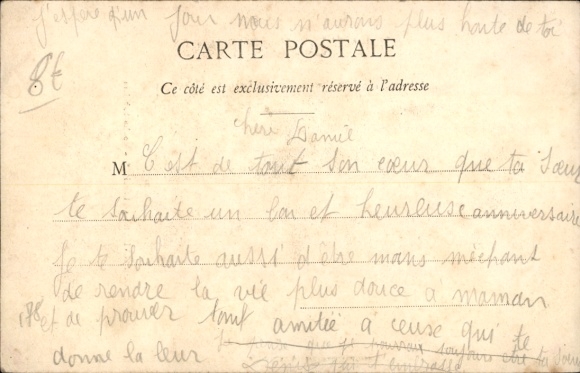 j'espère q'un jour nous n'aurons plus honte de toi
CARTE POSTALE
8€
Ce côté est exclusivement réservé à l'adresse
chère Daniel
M C'est de tout son cœur que ta Sœur
te souhaite un bon et heureuse anniversaire
Je te souhaite aussi d'être moins méchant
de rendre la vie plus douce a maman
et de prouver tout amitié à ceuse qui te
donne la leur
que je pourrais toujours être ta sœur
qui t'embrasse